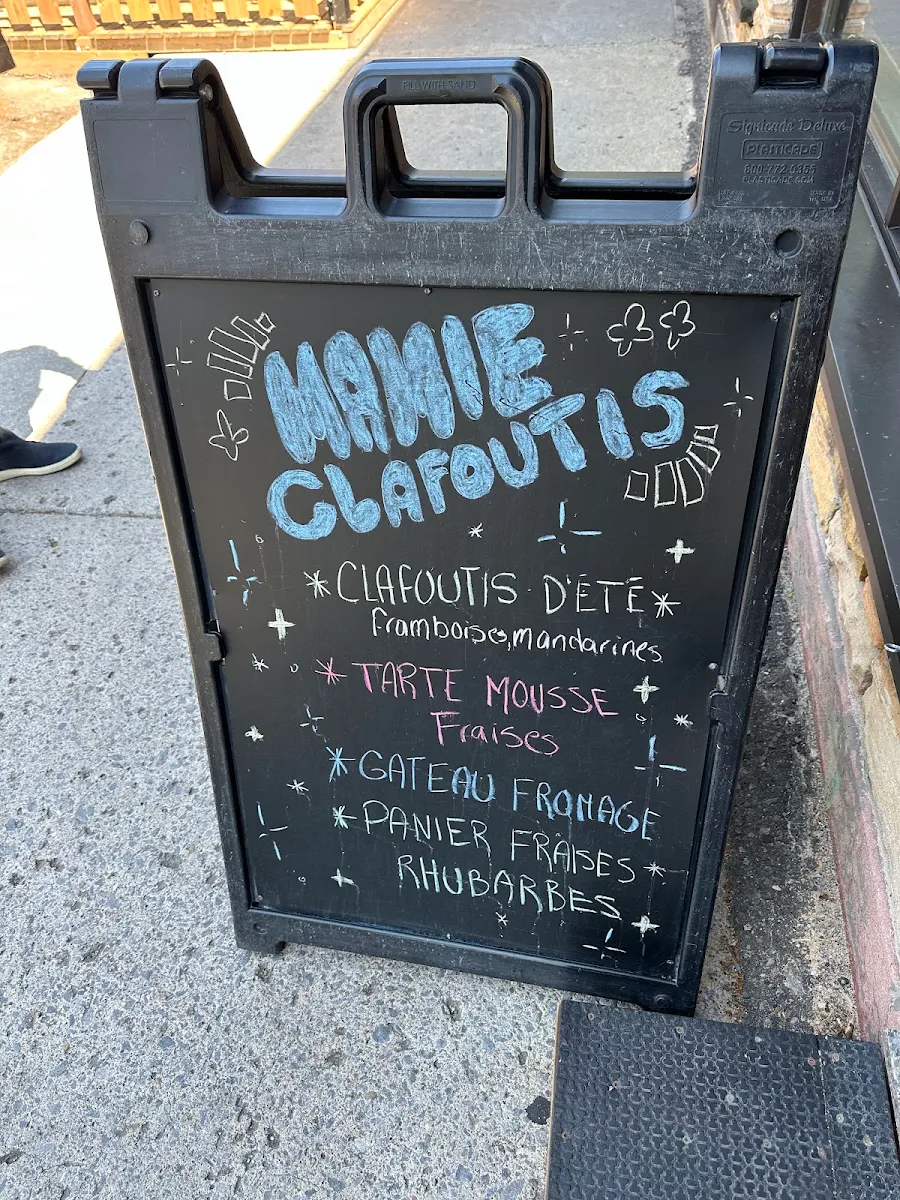 FILL WITH SAND
Signicade Deluxe
PLASTICADE
800-772-0355
PLASTICADE.COM
MAMIE
CLAFOUTIS
CLAFOUTIS D'ÉTÉ
framboise, mandarines
TARTE MOUSSE
Fraises
GATEAU FROMAGE
PANIER FRAISES
RHUBARBES